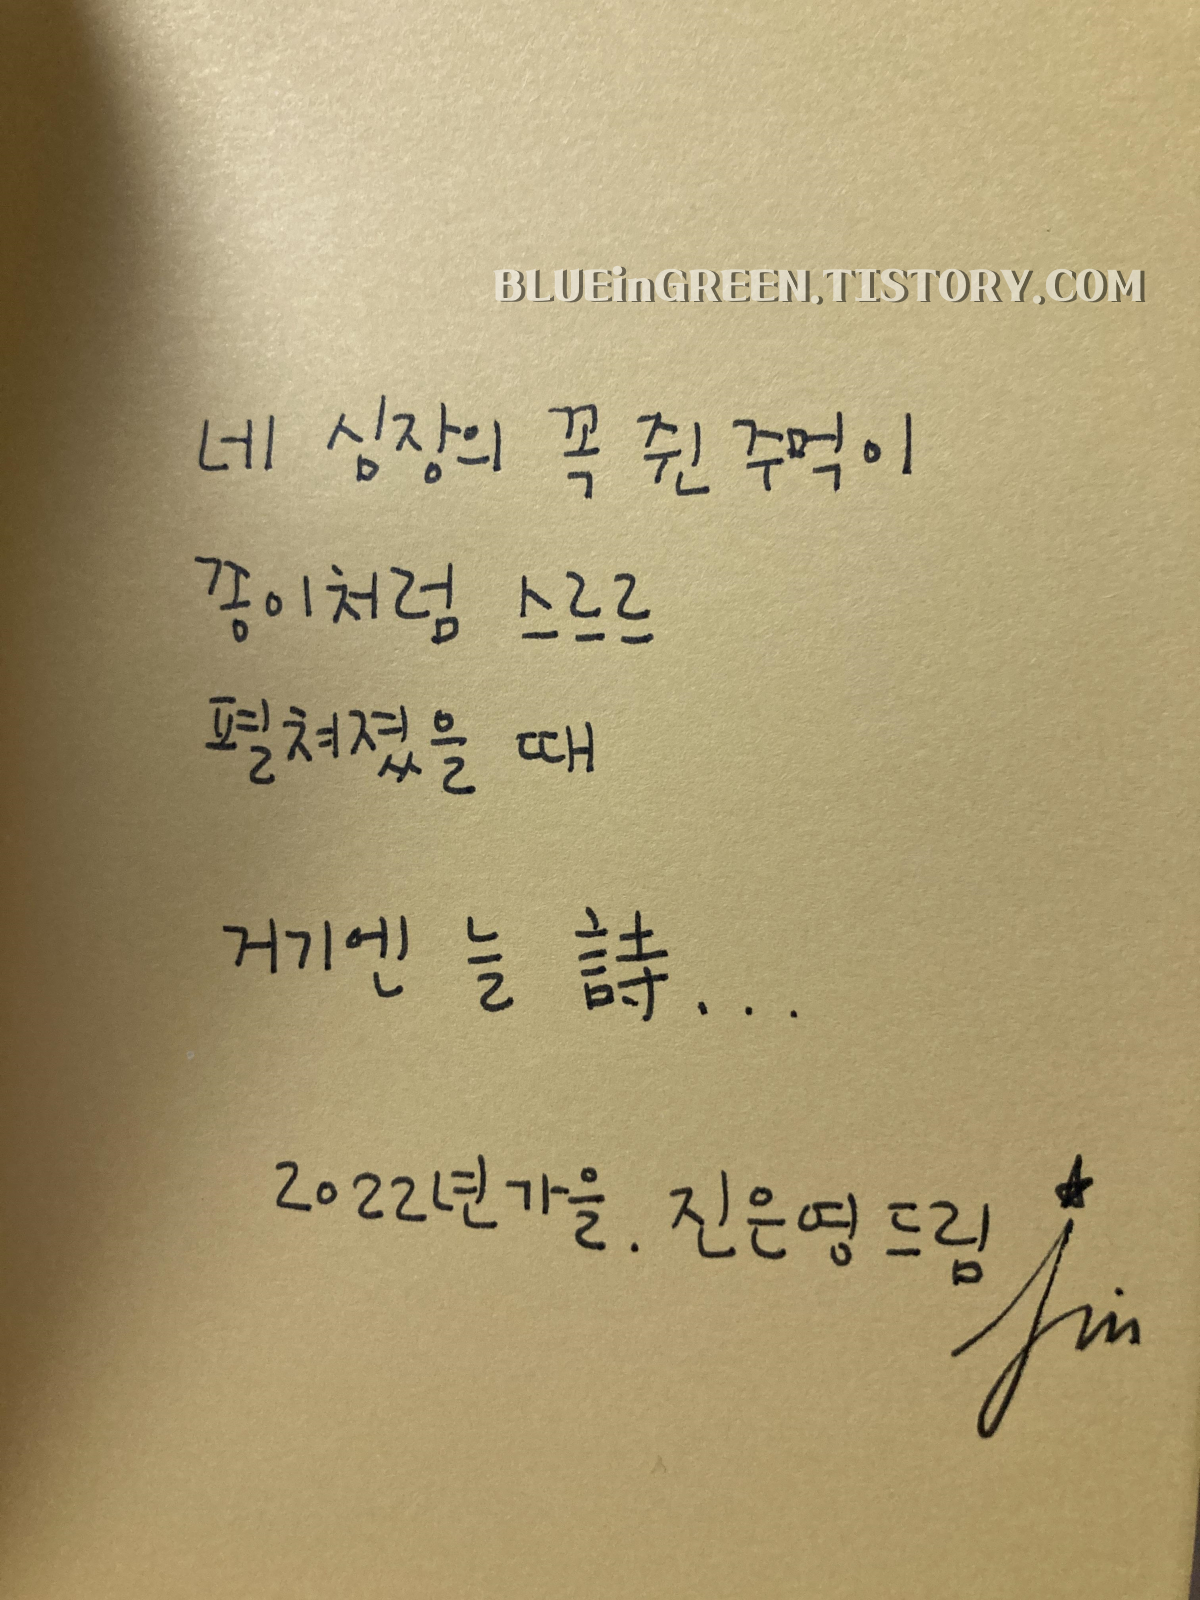 BLUEinGREEN.TISTORY.COM
네 심장의 꼭 쥔 주먹이
종이처럼 스르르
펼쳐졌을 때
거기엔 늘 詩...
2022년 가을. 진은영 드림
Jin